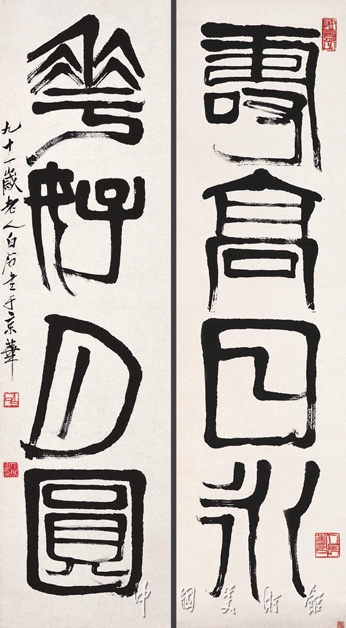 壽高日永
花好月圓
九十一歲老人白石書于京華
中國美術館